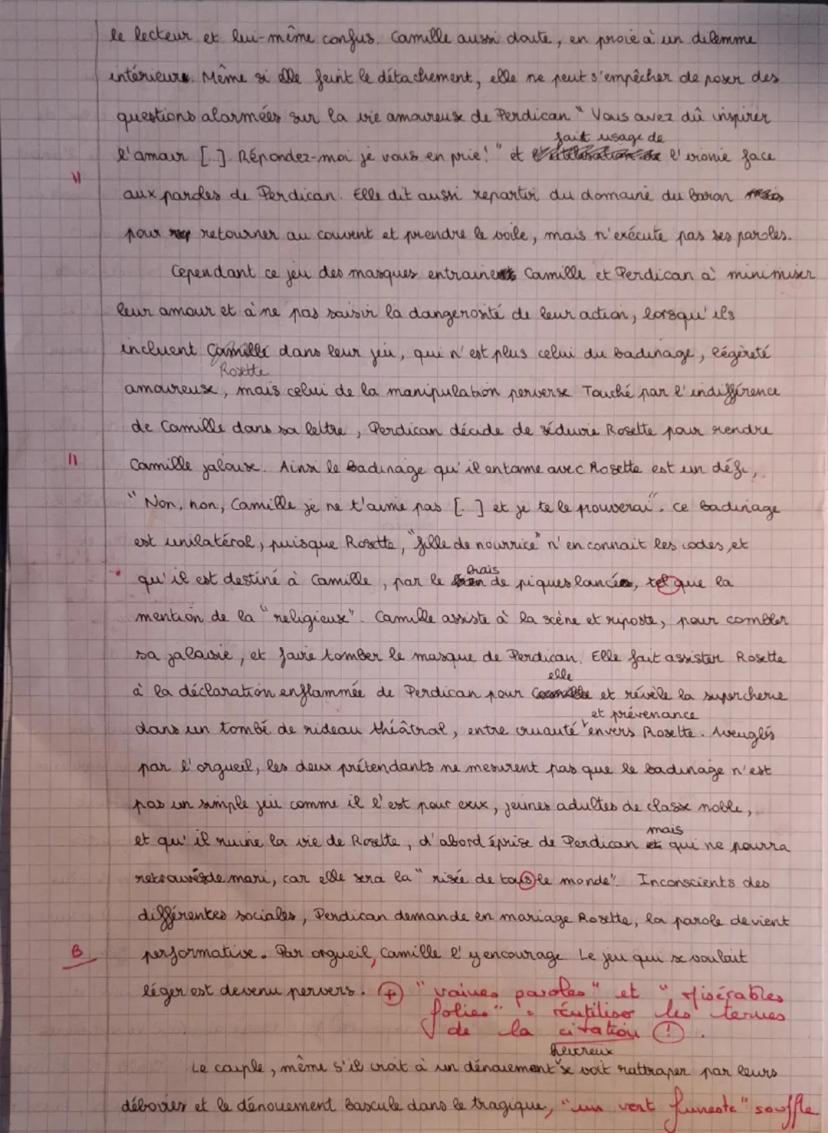 le lecteur et lui-même confus. Camille aussi doute, en proie à un dilemme
intérieure. Même si elle feint le détachement, elle ne peut s'empêcher de poser des
questions alarmées sur la vie amoureuse de Perdican " Vous avez dû inspirer
fait usage de
l'amour [..]. Répondez-moi je vous en prie! " et l'ironie face
aux paroles de Perdican. Elle dit aussi repartir du domaine du baron
pour retourner au couvent et prendre le voile, mais n'exécute pas ses paroles.
Cependant ce jeu des masques entraine Camille et Perdican à minimiser
leur amour et à ne pas saisir la dangerosité de leur action, lorsqu'ils
incluent Camille dans leur jeu, qui n'est plus celui du badinage, légèreté
Rosette
amoureuse, mais celui de la manipulation perverse Touché par l'indifférence
de Camille dans sa lettre, Perdican décide de séduire Rosette pour rendre
Camille jalouse. Ainsi le Badinage qu'il entame avec Rosette est un défi,
" Non, non, Camille je ne t'aime pas [..] et je te le prouverai". Ce badinage
est unilatéral, puisque Rosette, "fille de nourrice" n'en connait les codes, et
biais
qu'il est destiné à Camille, par le de piques lancées, tel que la
mention de la "religieuse". Camille assiste à la scène et riposte, pour combler
sa jalousie, et faire tomber le masque de Perdican. Elle fait assister Rosette
elle
à la déclaration enflammée de Perdican pour et révèle la supercherie
et prévenance
dans un tombé de rideau théâtral, entre cruauté envers Rosette. Aveuglés
par l'orgueil, les deux prétendants ne mesurent pas que le badinage n'est
pas un simple jeu comme il l'est pour eux, jeunes adultes de classe noble,
mais
et qu'il ruine la vie de Rosette, d'abord éprise de Perdican qui ne pourra
de mari, car elle sera la "risée de tous le monde". Inconscients des
différentes sociales, Perdican demande en mariage Rosette, la parole devient
B performative. Par orgueil, Camille l'y encourage. Le jeu qui se voulait
léger est devenu pervers. + "vaines paroles" et "misérables
folies" = réutiliser les termes
de la citation !.
heureux
Le couple, même s'il croit à un dénouement se voit rattraper par leurs
déboires et le dénouement bascule dans le tragique, "un vent funeste" souffle